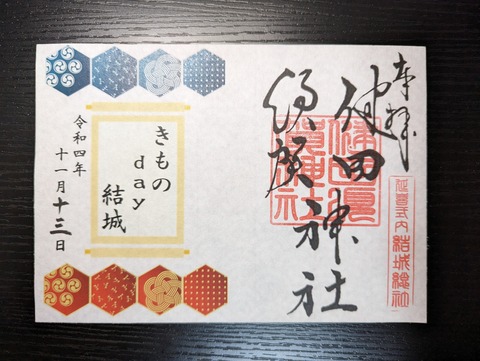 奉拝
健田
須賀神社
延喜式内 結城總社
きもの
day
結城
令和四年
十一月十三日